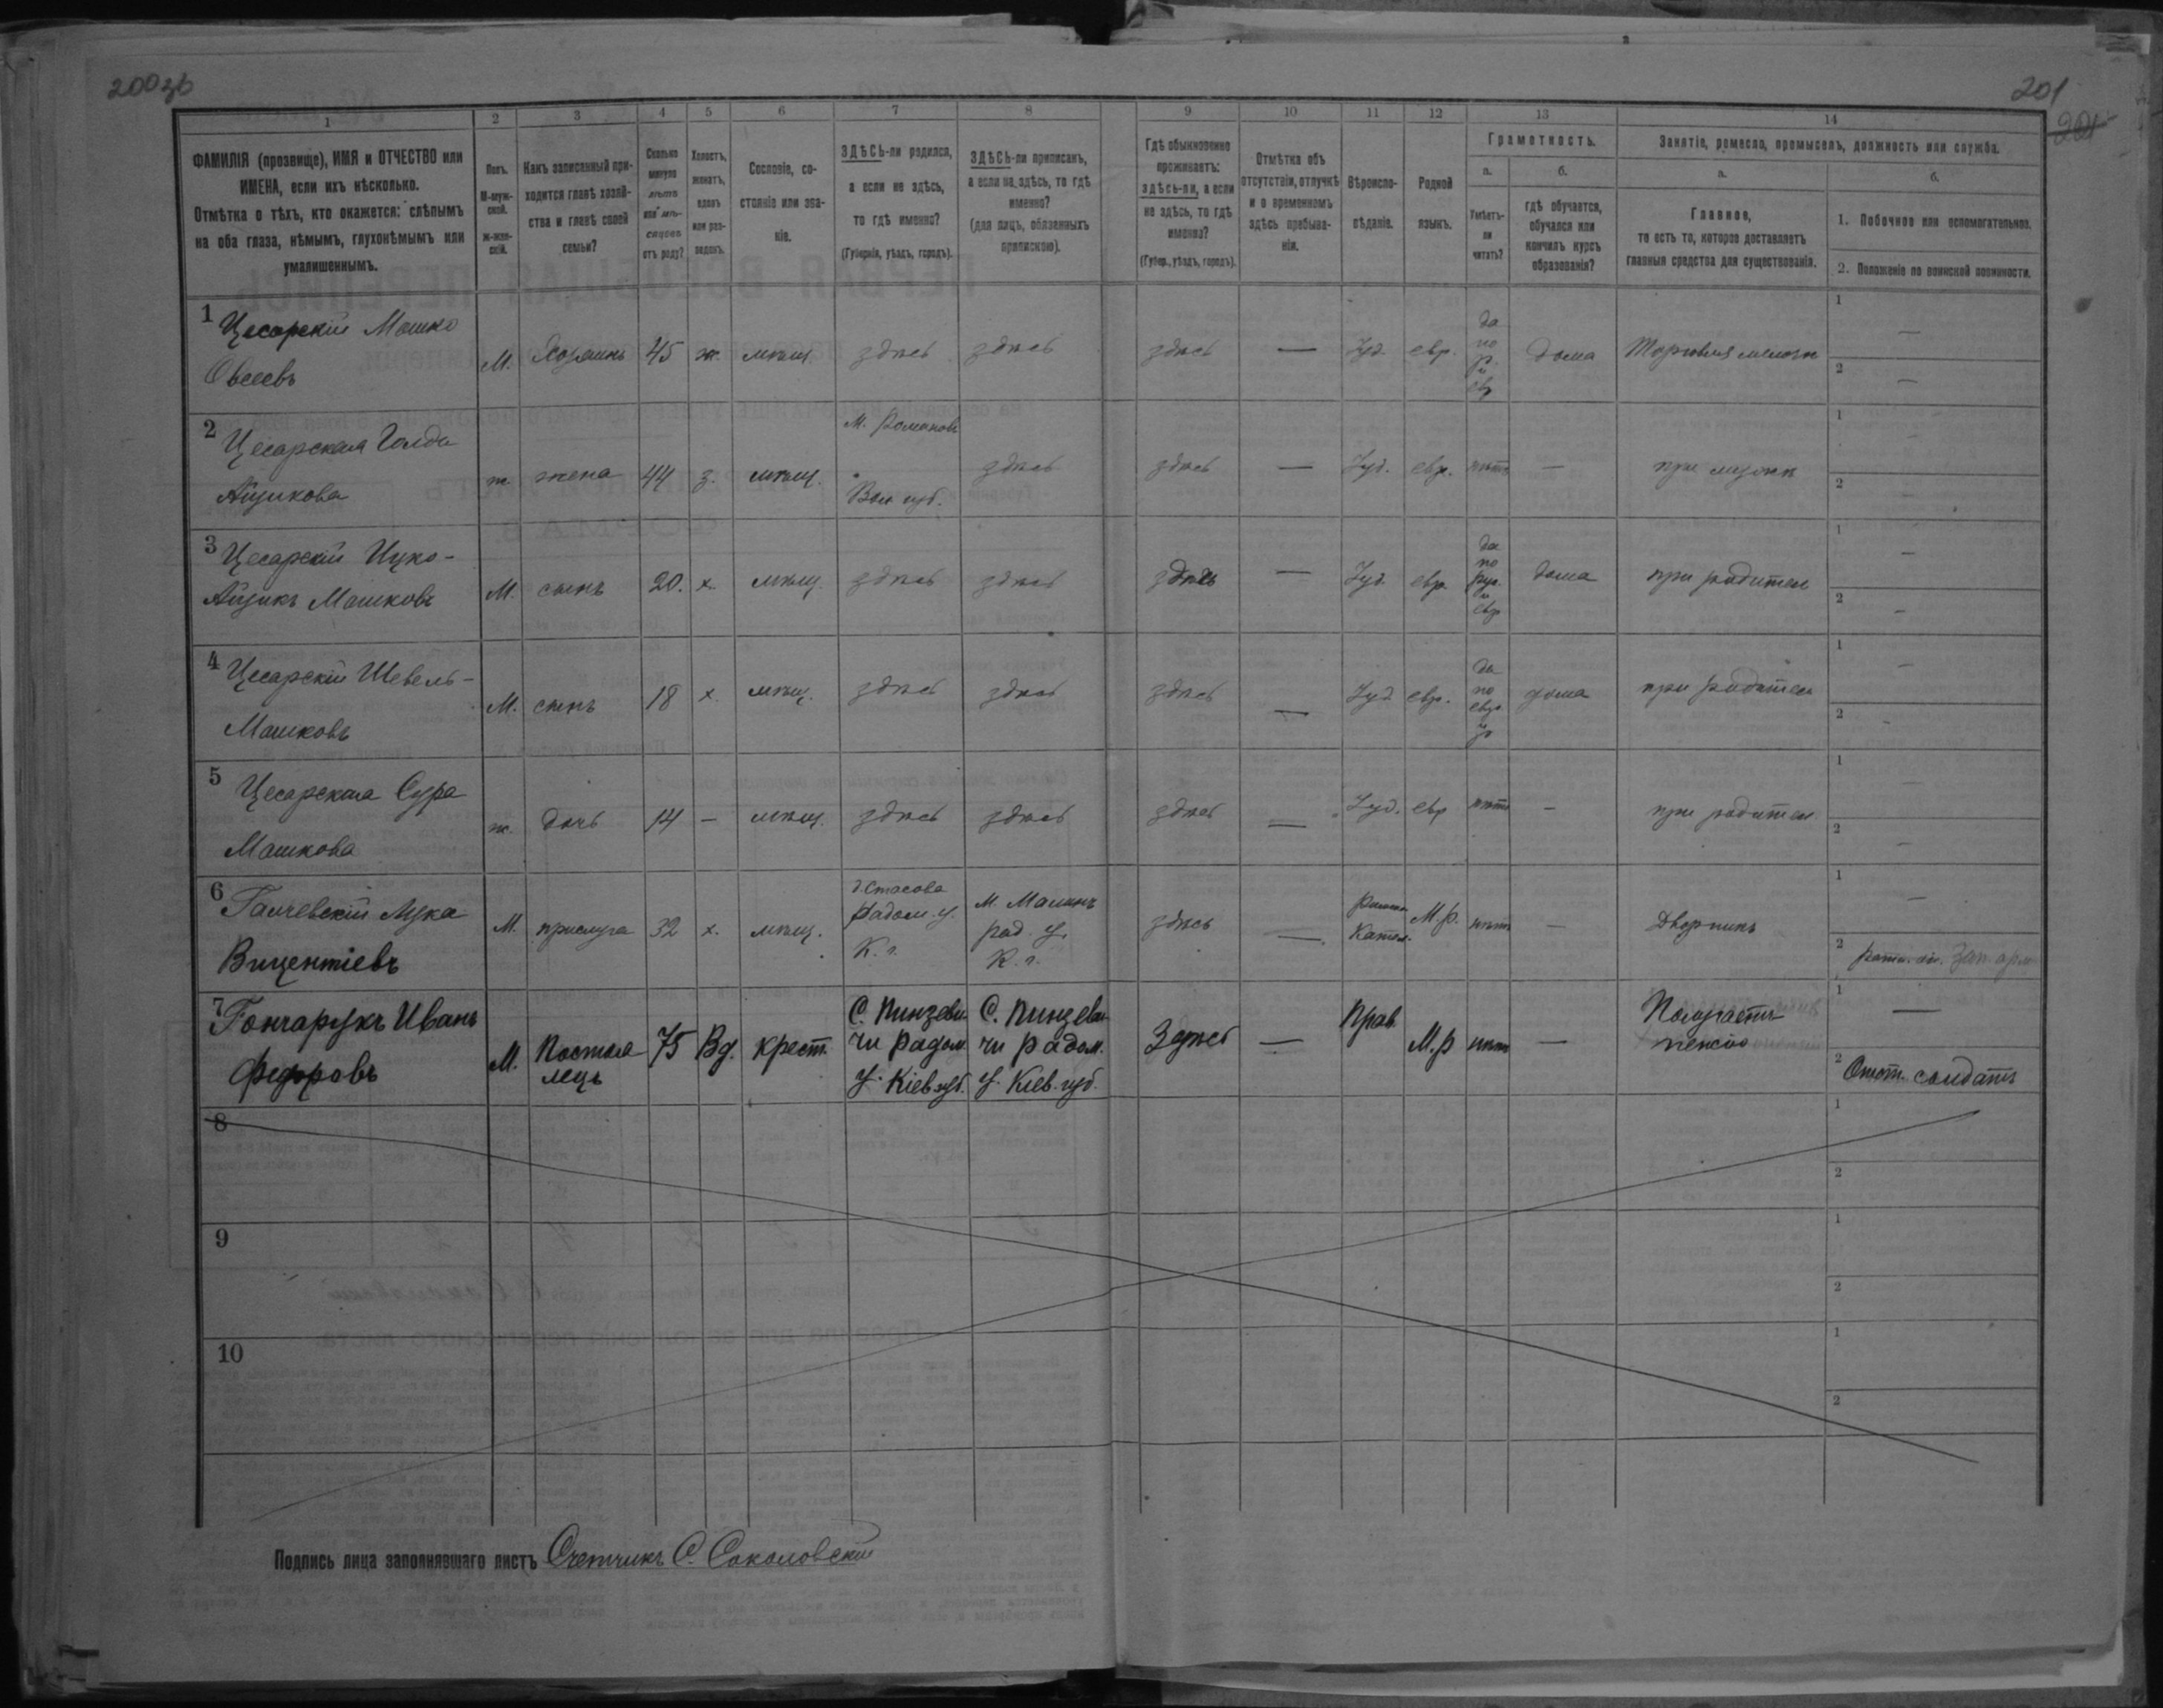 200 об
201
201
1 2 3 4 5 6 7 8 9 10 11 12 13 14
ФАМИЛІЯ (прозвище), ИМЯ и ОТЧЕСТВО или ИМЕНА, если ихъ нѣсколько.
Отмѣтка о тѣхъ, кто окажется: слѣпымъ на оба глаза, нѣмымъ, глухонѣмымъ или умалишеннымъ.
Полъ. М-муж-ской. ж-жен-скій.
Какъ записанный при-ходится главѣ хозяй-ства и главѣ своей семьи?
Сколько минуло лѣтъ или мѣ-сяцевъ отъ роду?
Холостъ, женатъ, вдовъ или раз-веденъ.
Сословіе, со-стояніе или зва-ніе.
ЗДѢСЬ-ли родился, а если не здѣсь, то гдѣ именно? (Губернія, уѣздъ, городъ).
ЗДѢСЬ-ли приписанъ, а если не здѣсь, то гдѣ именно? (для лицъ, обязанныхъ припискою).
Гдѣ обыкновенно проживаетъ: здѣсь-ли, а если не здѣсь, то гдѣ именно? (Губер., уѣздъ, городъ).
Отмѣтка объ отсутствіи, отлучкѣ и о временномъ здѣсь пребыва-ніи.
Вѣроиспо-вѣданіе.
Родной языкъ.
Грамотность.
а. Умѣетъ-ли читать?
б. гдѣ обучается, обучался или кончилъ курсъ образованія?
Занятіе, ремесло, промыселъ, должность или служба.
а. Главное, то есть то, которое доставляетъ главныя средства для существованія.
б.
1. Побочное или вспомогательное.
2. Положеніе по воинской повинности.
1 Цесарскій Мошко Овсеевъ М. Хозяинъ 45 ж. мѣщ. здѣсь здѣсь здѣсь — Іуд. евр. да по р. и евр дома Торговля 1 — 2 —
2 Цесарская Голда Айзикова ж жена 44 з. мѣщ. М. Романовъ Вол губ. здѣсь здѣсь — Іуд. евр. нѣтъ — при мужѣ 1 — 2 —
3 Цесарскій Ицко-Айзикъ Мошковъ М. сынъ 20. х. мѣщ. здѣсь здѣсь здѣсь — Іуд. евр. да по рус. и евр дома при родител 1 — 2 —
4 Цесарскій Шевель-Мошковъ М. сынъ 18 х. мѣщ. здѣсь здѣсь здѣсь — Іуд евр. да по евр и р дома при родител 1 — 2 —
5 Цесарская Сура Мошкова ж. дочь 14 — мѣщ. здѣсь здѣсь здѣсь — Іуд. евр нѣтъ — при родител 1 — 2 —
6 Галчевскій Лука Вицентіевъ М. прислуга 32 х. мѣщ. д. Стасова Радом. у. К. г. М. Малинъ рад. у. К. г. здѣсь — Римско Катол. М. р. нѣтъ — Дворникъ 1 — 2 зап. арм
7 Гончарукъ Иванъ Федоровъ М. Постоялецъ 75 Вд. крест. С. Пинзевичи Радом у. Кіев губ. С. Пинзевичи радом. у. Кіев. губ. Здѣсь — Прав. М. р нѣтъ — Получаетъ пенсію 1 — 2 Отст. солдатъ
8 1 2
9 1 2
10 1 2
Подпись лица заполнявшаго листъ Счетчикъ С. Соколовскій